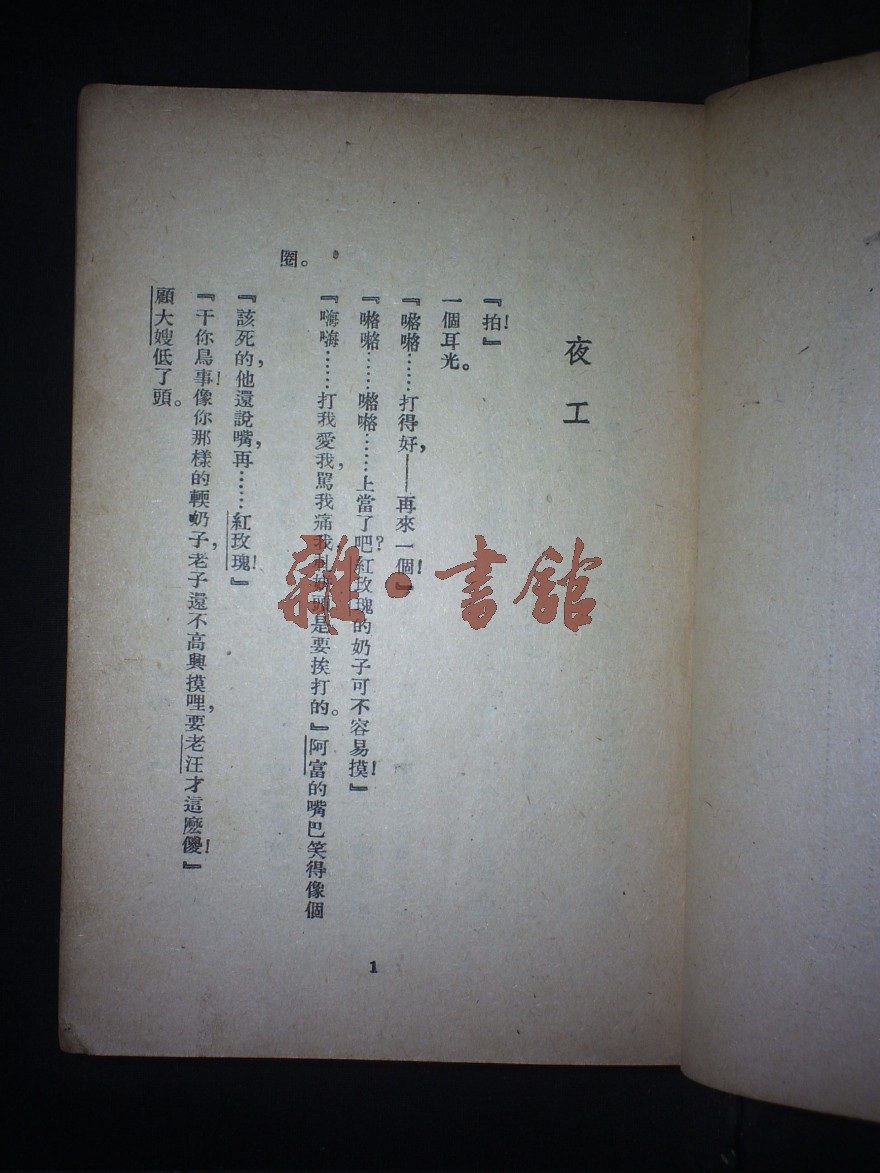 夜工
『拍！』
一個耳光。
『……打得好，——再來一個！』
『…………上當了吧？紅玫瑰的奶子可不容易摸！』
『嗨嗨……打我愛我，罵我痛我，頭是要挨打的。』阿富的嘴巴笑得像個
圈。
『該死的，他還說嘴，再……紅玫瑰！』
『干你鳥事！像你那樣的輭奶子，老子還不高興摸哩，要老汪才這麽傻！』
顧大嫂低了頭。
1
雜·書館